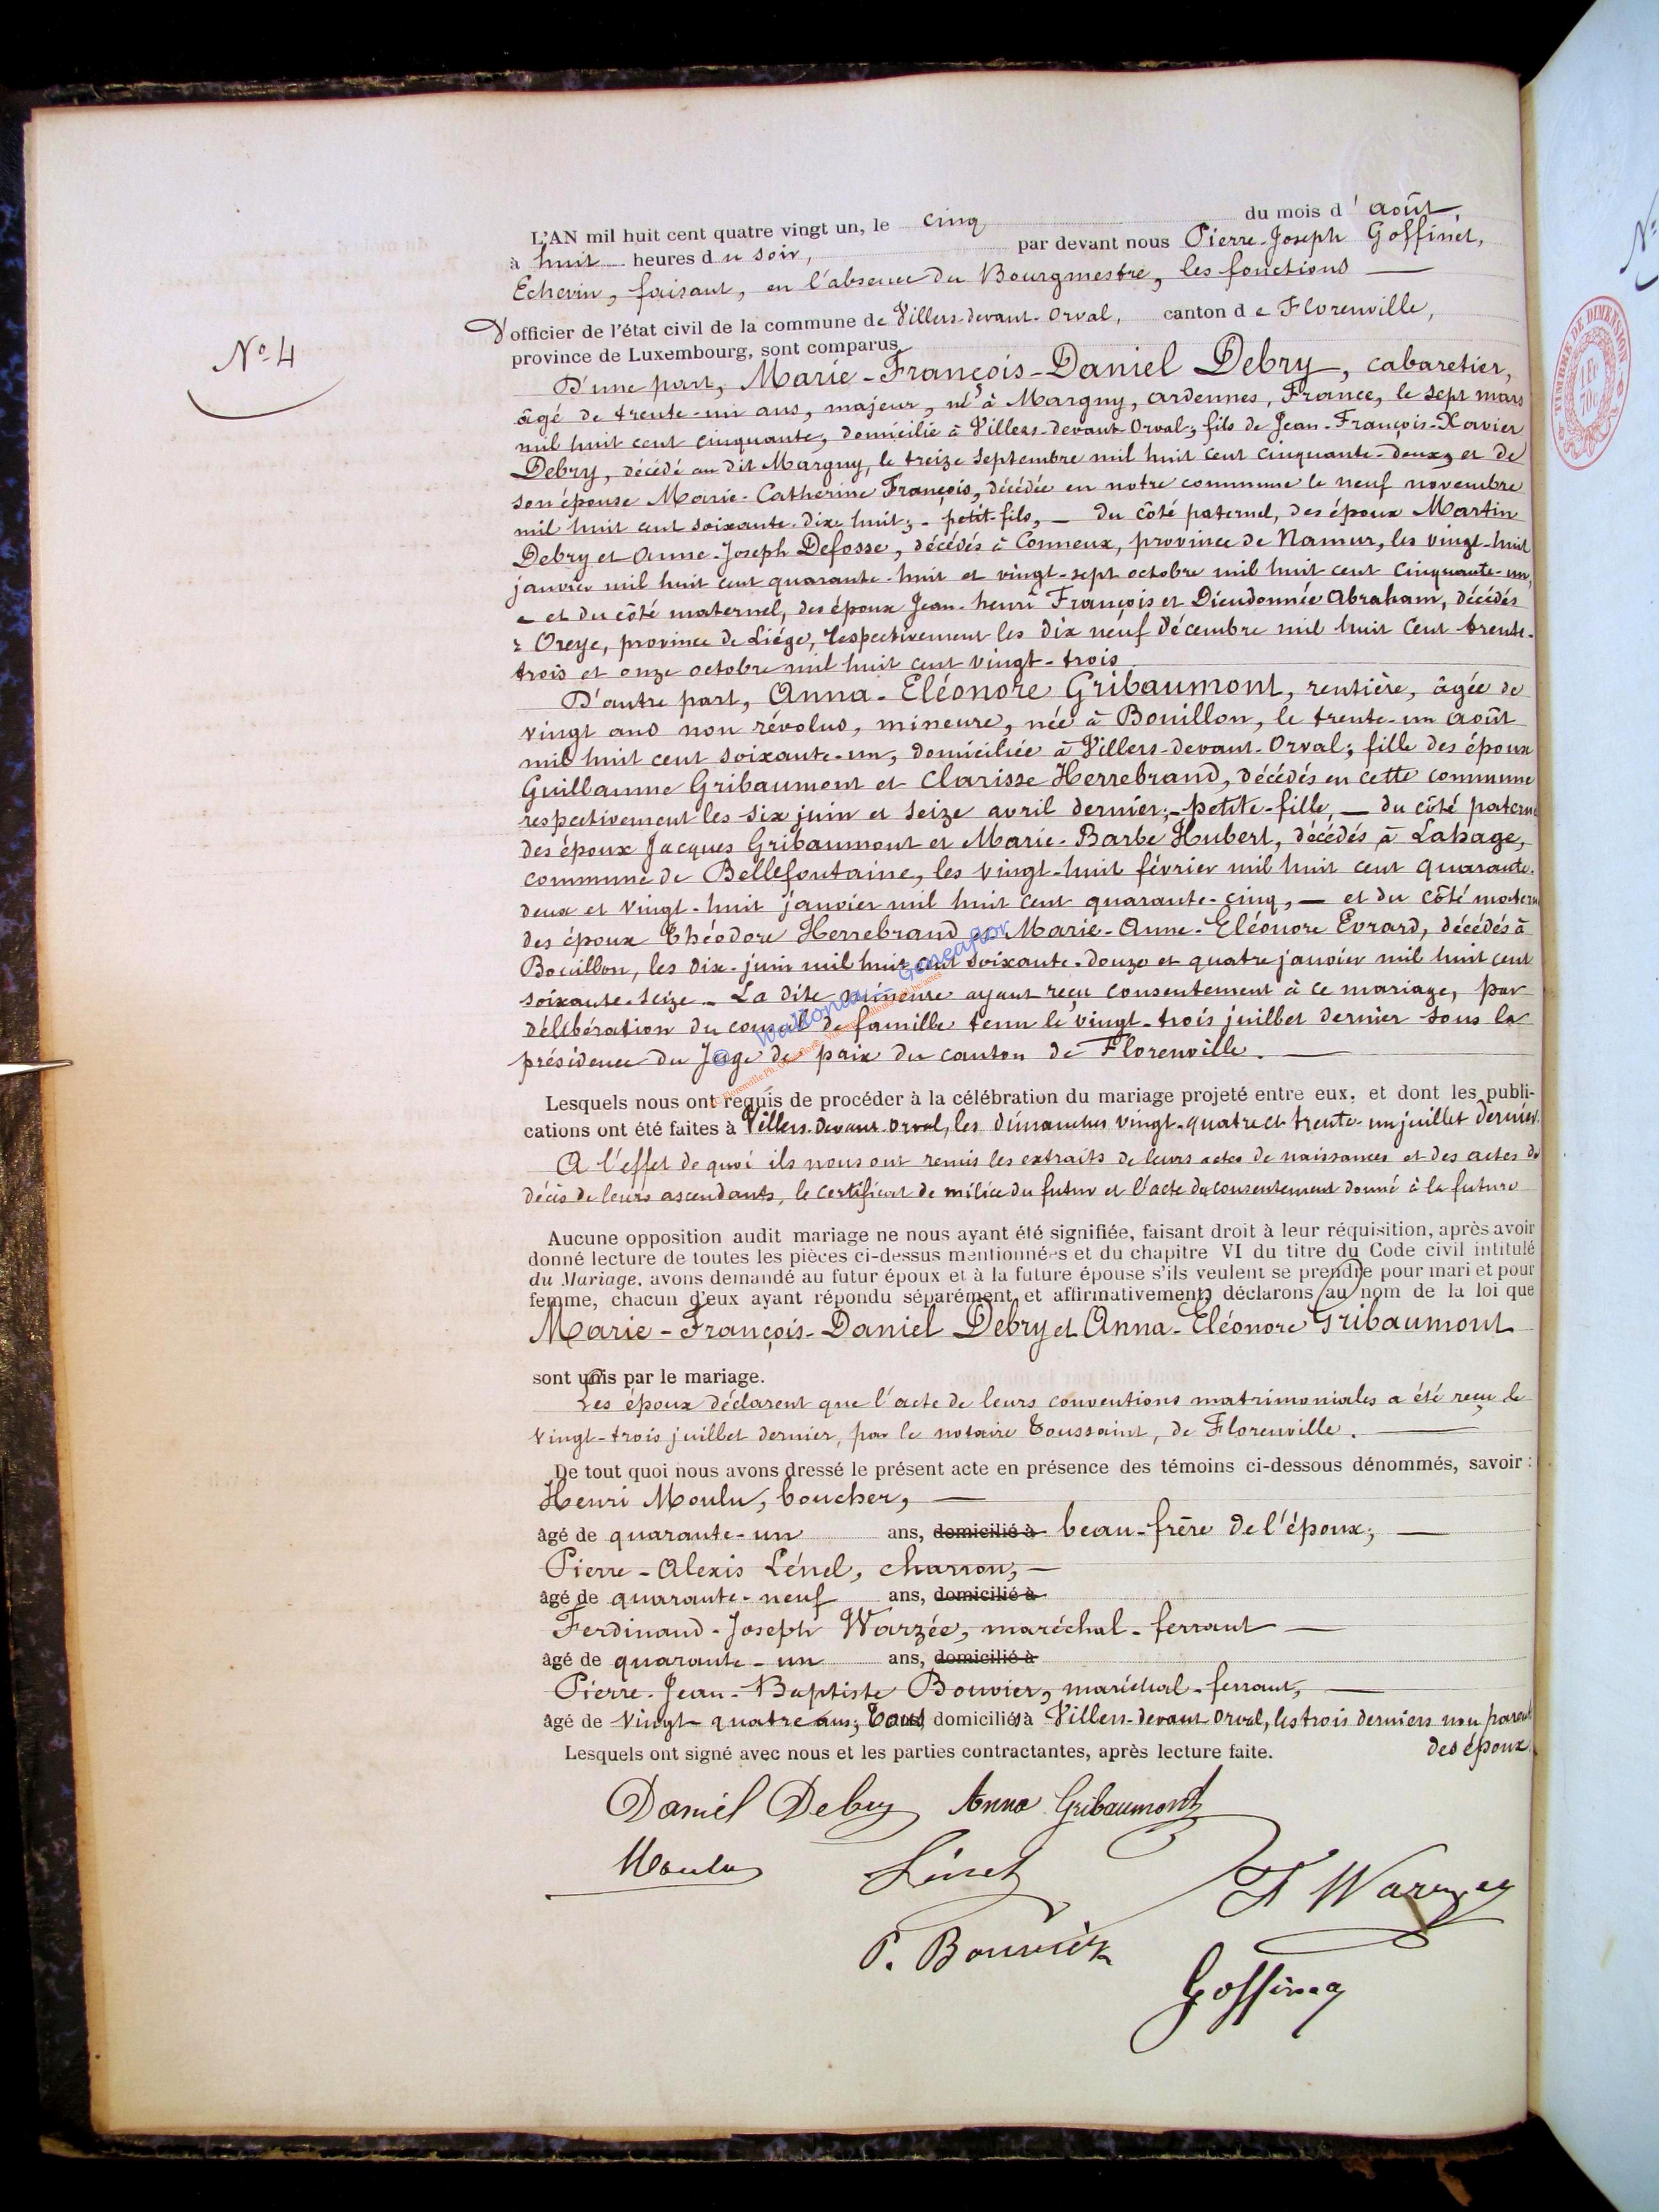 N° 4
L'AN mil huit cent quatre vingt un, le cinq du mois d'août
à huit heures du soir, par devant nous Pierre-Joseph Goffinet,
Echevin, faisant, en l'absence du Bourgmestre, les fonctions
D'officier de l'état civil de la commune de Villers-devant-Orval, canton de Florenville,
province de Luxembourg, sont comparus
D'une part, Marie-François-Daniel Debry, cabaretier,
âgé de trente-un ans, majeur, né à Margny, ardennes, France, le sept mars
mil huit cent cinquante, domicilié à Villers-devant-Orval; fils de Jean-François-Xavier
Debry, décédé au dit Margny, le treize septembre mil huit cent cinquante-deux, et de
son épouse Marie-Catherine François, décédée en notre commune le neuf novembre
mil huit cent soixante-dix-huit; - petit-fils, - du côté paternel, des époux Martin
Debry et Anne-Joseph Defosse, décédés à Conneux, province de Namur, les vingt-huit
janvier mil huit cent quarante-huit et vingt-sept octobre mil huit cent cinquante-un,
- et du côté maternel, des époux Jean-henri François et Dieudonnée Abraham, décédés
à Oreye, province de Liége, respectivement les dix neuf décembre mil huit cent trente-
trois et onze octobre mil huit cent vingt-trois.
D'autre part, Anna-Eléonore Gribaumont, rentière, âgée de
vingt ans non révolus, mineure, née à Bouillon, le trente-un août
mil huit cent soixante-un, domiciliée à Villers-devant-Orval; fille des époux
Guillaume Gribaumont et Clarisse Herrebrand, décédés en cette commune
respectivement les six juin et seize avril dernier; - petite-fille, - du côté paterne
des époux Jacques Gribaumont et Marie-Barbe Hubert, décédés à Lahage,
commune de Bellefontaine, les vingt-huit février mil huit cent quarante-
deux et vingt-huit janvier mil huit cent quarante-cinq, - et du côté matern
des époux Théodore Herrebrand et Marie-Anne-Eléonore Evrard, décédés à
Bouillon, les dix-juin mil huit cent soixante-douze et quatre janvier mil huit cent
soixante-seize. - La dite mineure ayant reçu consentement à ce mariage, par
délibération du conseil de famille tenu le vingt-trois juillet dernier sous la
présidence du Juge de paix du canton de Florenville.
Lesquels nous ont requis de procéder à la célébration du mariage projeté entre eux, et dont les publi-
cations ont été faites à Villers-devant-Orval, les dimanches vingt-quatre et trente-un juillet dernier.
A l'effet de quoi ils nous ont remis les extraits de leurs actes de naissances et des actes de
décès de leurs ascendants, le certificat de milice du futur et l'acte du consentement donné à la future
Aucune opposition audit mariage ne nous ayant été signifiée, faisant droit à leur réquisition, après avoir
donné lecture de toutes les pièces ci-dessus mentionnées et du chapitre VI du titre du Code civil intitulé
du Mariage, avons demandé au futur époux et à la future épouse s'ils veulent se prendre pour mari et pour
femme, chacun d'eux ayant répondu séparément et affirmativement, déclarons au nom de la loi que
Marie-François-Daniel Debry et Anna-Eléonore Gribaumont
sont unis par le mariage.
Les époux déclarent que l'acte de leurs conventions matrimoniales a été reçu le
vingt-trois juillet dernier, par le notaire Toussaint, de Florenville.
De tout quoi nous avons dressé le présent acte en présence des témoins ci-dessous dénommés, savoir :
Henri Moulu, boucher,
âgé de quarante-un ans, domicilié à beau-frère de l'époux;
Pierre-Alexis Lénel, charron,
âgé de quarante-neuf ans, domicilié à
Ferdinand-Joseph Warzée, maréchal-ferrant
âgé de quarante-un ans, domicilié à
Pierre-Jean-Baptiste Bouvier, maréchal-ferrant,
âgé de vingt-quatre ans; Tous domiciliés à Villers-devant-Orval, les trois derniers non parents
des époux
Lesquels ont signé avec nous et les parties contractantes, après lecture faite.
Daniel Debry Anna Gribaumont
Moulu
F Warzée
P. Bouvier
Goffinet
TIMBRE DE DIMENSION